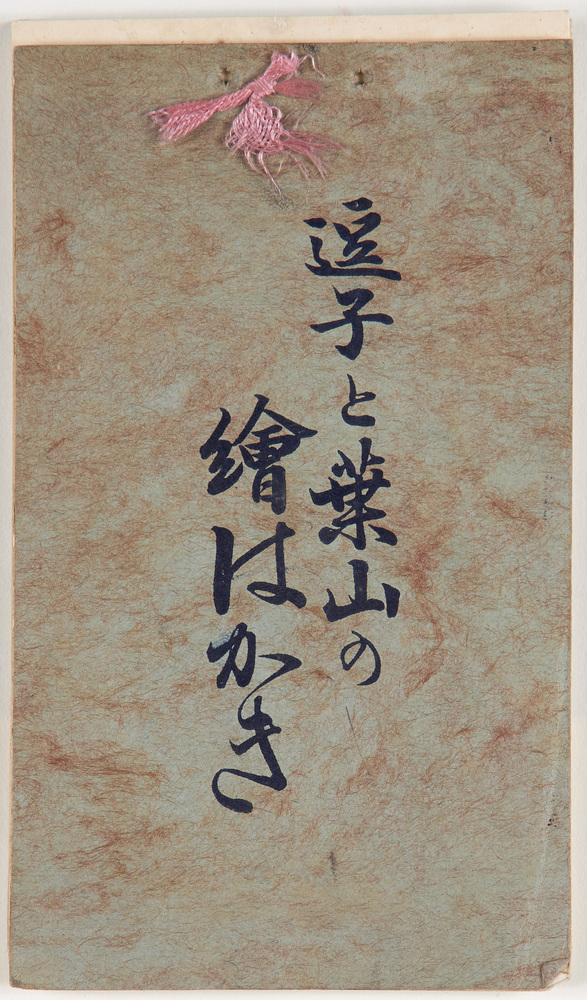 逗子と葉山の
繪はかき